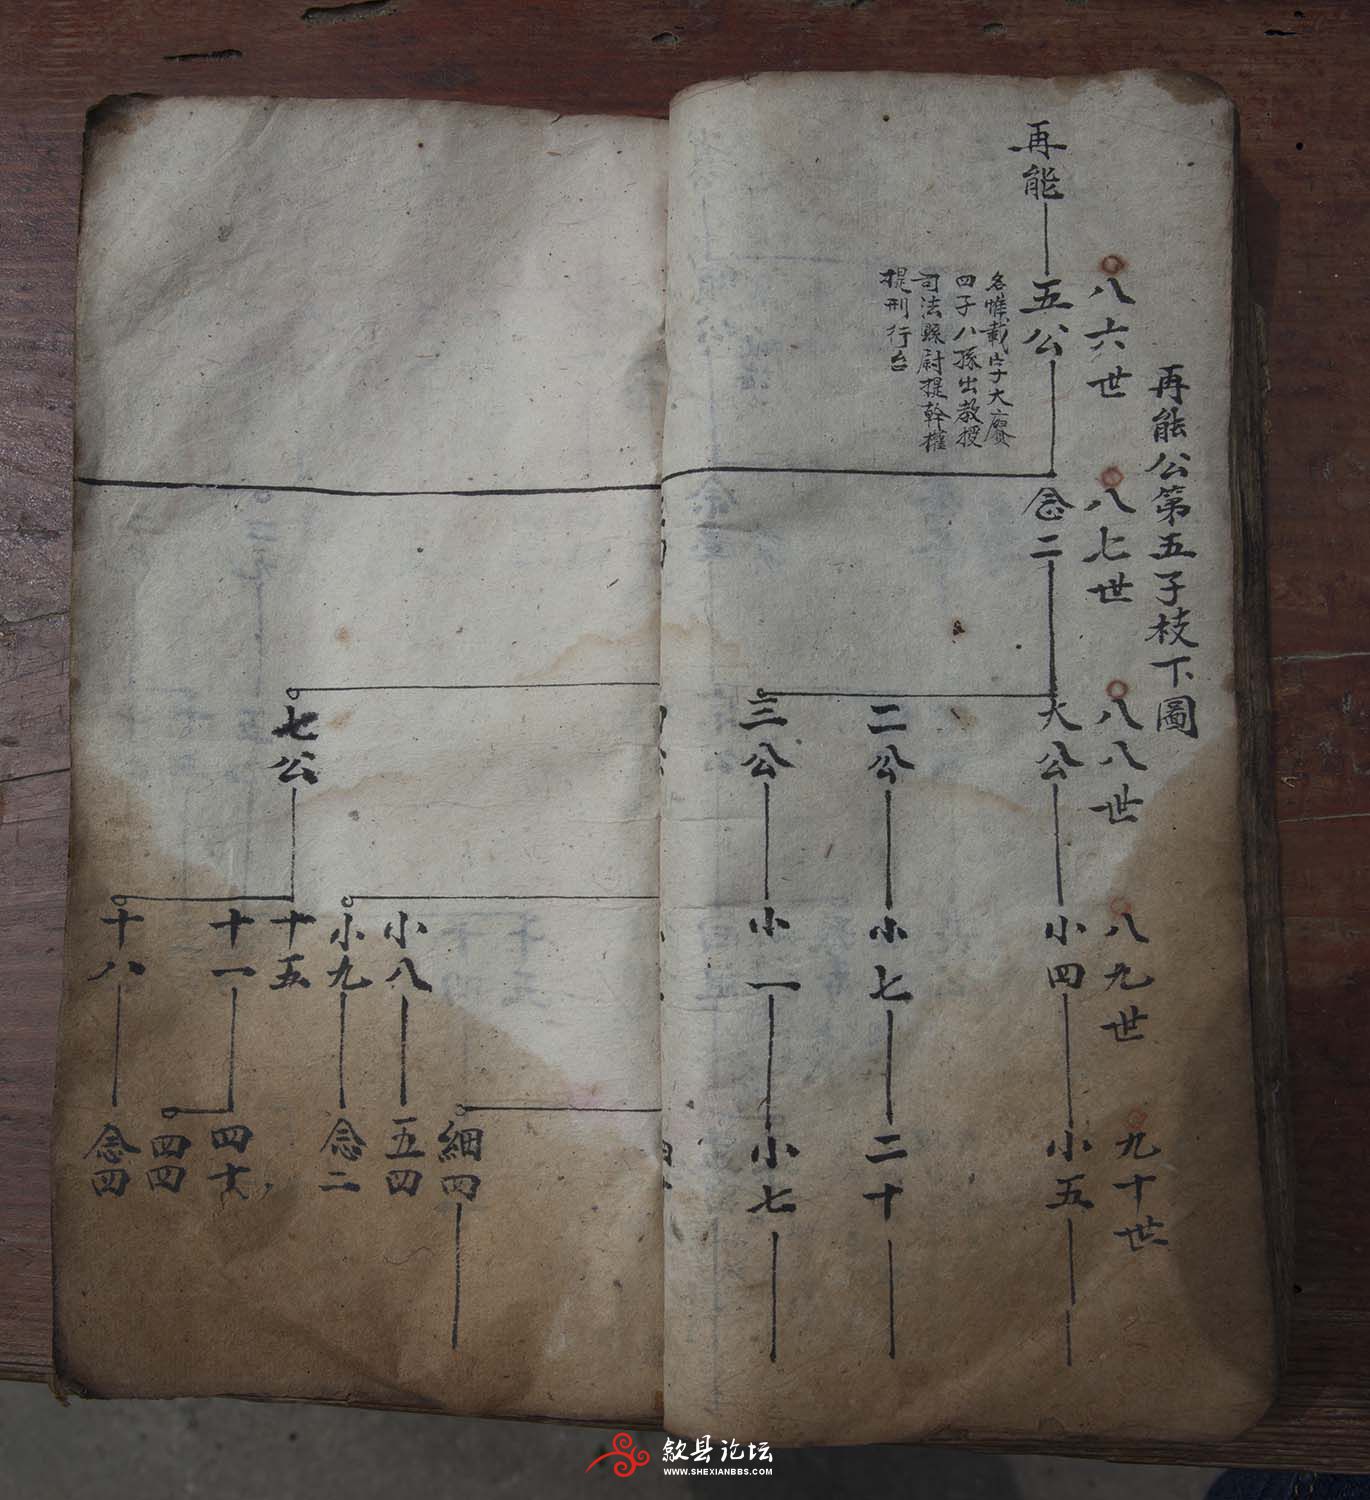 再能公第五子枝下圖
八六世
八七世
八八世
八九世
九十世
再能
五公
名惟載字大賡
四子八孫出教授
司法縣尉提幹權
提刑行台
念二
大公
小四
小五
二公
小七
二十
三公
小一
小七
細四
小八
五四
小九
念二
七公
十五
十一
四十
四四
十八
念四
歙县论坛
WWW.SHEXIANBBS.COM